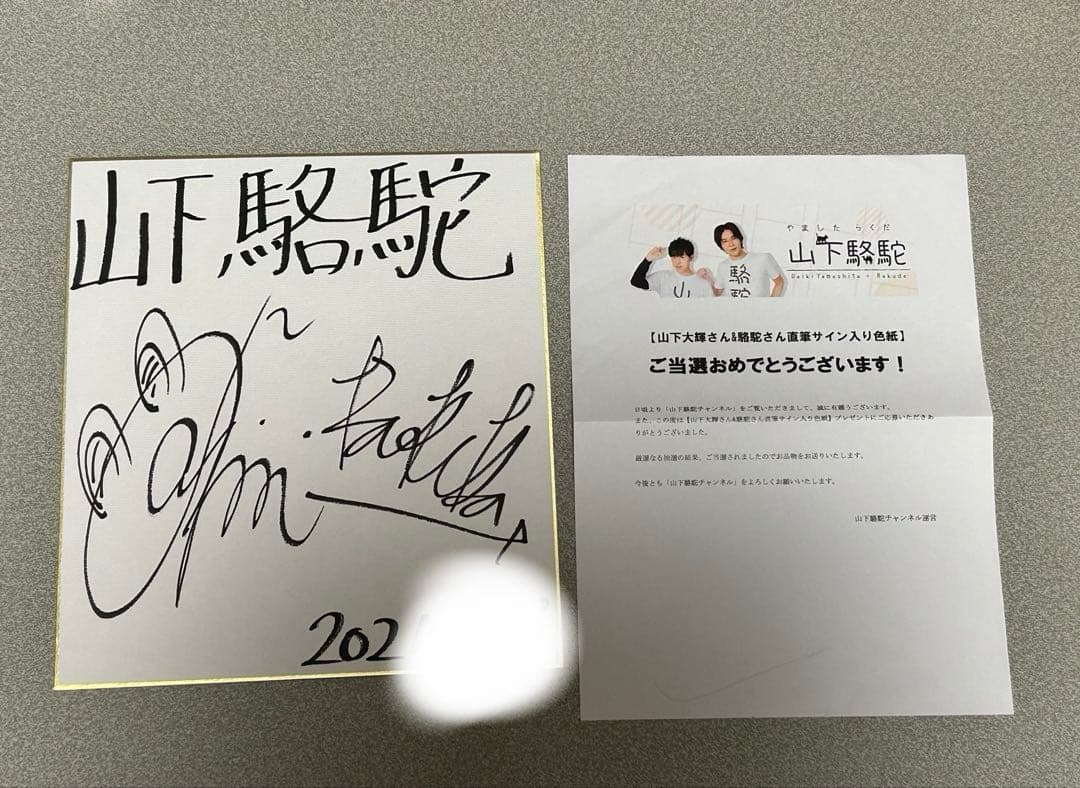 山下駱駝
202
やました らくだ
山下駱駝
Daiki Yamashita × Rakuda
駱
駝
山
【山下大輝さん&駱駝さん直筆サイン入り色紙】
ご当選おめでとうございます！
日頃より「山下駱駝チャンネル」をご覧いただきまして、誠に有難うございます。
また、この度は【山下大輝さん&駱駝さん直筆サイン入り色紙】プレゼントにご応募いただきあ
りがとうございました。
厳選なる抽選の結果、ご当選されましたのでお品物をお送りいたします。
今後とも「山下駱駝チャンネル」をよろしくお願いいたします。
山下駱駝チャンネル運営